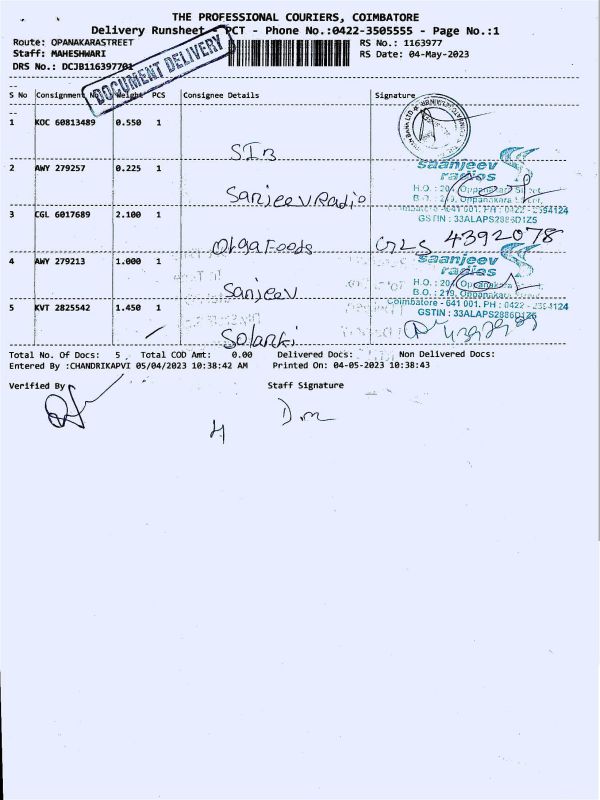 THE PROFESSIONAL COURIERS, COIMBATORE
Delivery Runsheet - PCT - Phone No.:0422-3505555 - Page No.:1
Route: OPANAKARASTREET RS No.: 1163977
Staff: MAHESHWARI RS Date: 04-May-2023
DRS No.: DCJB116397701
DOCUMENT DELIVERY
S No Consignment No Weight PCS Consignee Details Signature
1 KOC 60813489 0.550 1
SIB
2 AWY 279257 0.225 1
Sanjeev Radio
saanjeev
radios
H.O. : 20, Oppanakara Street,
B.O. : 219, Oppanakara Street,
Coimbatore - 641 001. PH : 0422 - 2394124
GSTIN : 33ALAPS2886D1Z5
3 CGL 6017689 2.100 1
Orga Foods 4392078
4 AWY 279213 1.000 1
Sanjeev
saanjeev
radios
H.O. : 20, Oppanakara
B.O. : 219, Oppanakara Street,
Coimbatore - 641 001. PH : 0422 - 2394124
GSTIN : 33ALAPS2886D1Z5
5 KVT 2825542 1.450 1
Solanki
Total No. Of Docs: 5 Total COD Amt: 0.00 Delivered Docs: Non Delivered Docs:
Entered By :CHANDRIKAPVI 05/04/2023 10:38:42 AM Printed On: 04-05-2023 10:38:43
Verified By Staff Signature